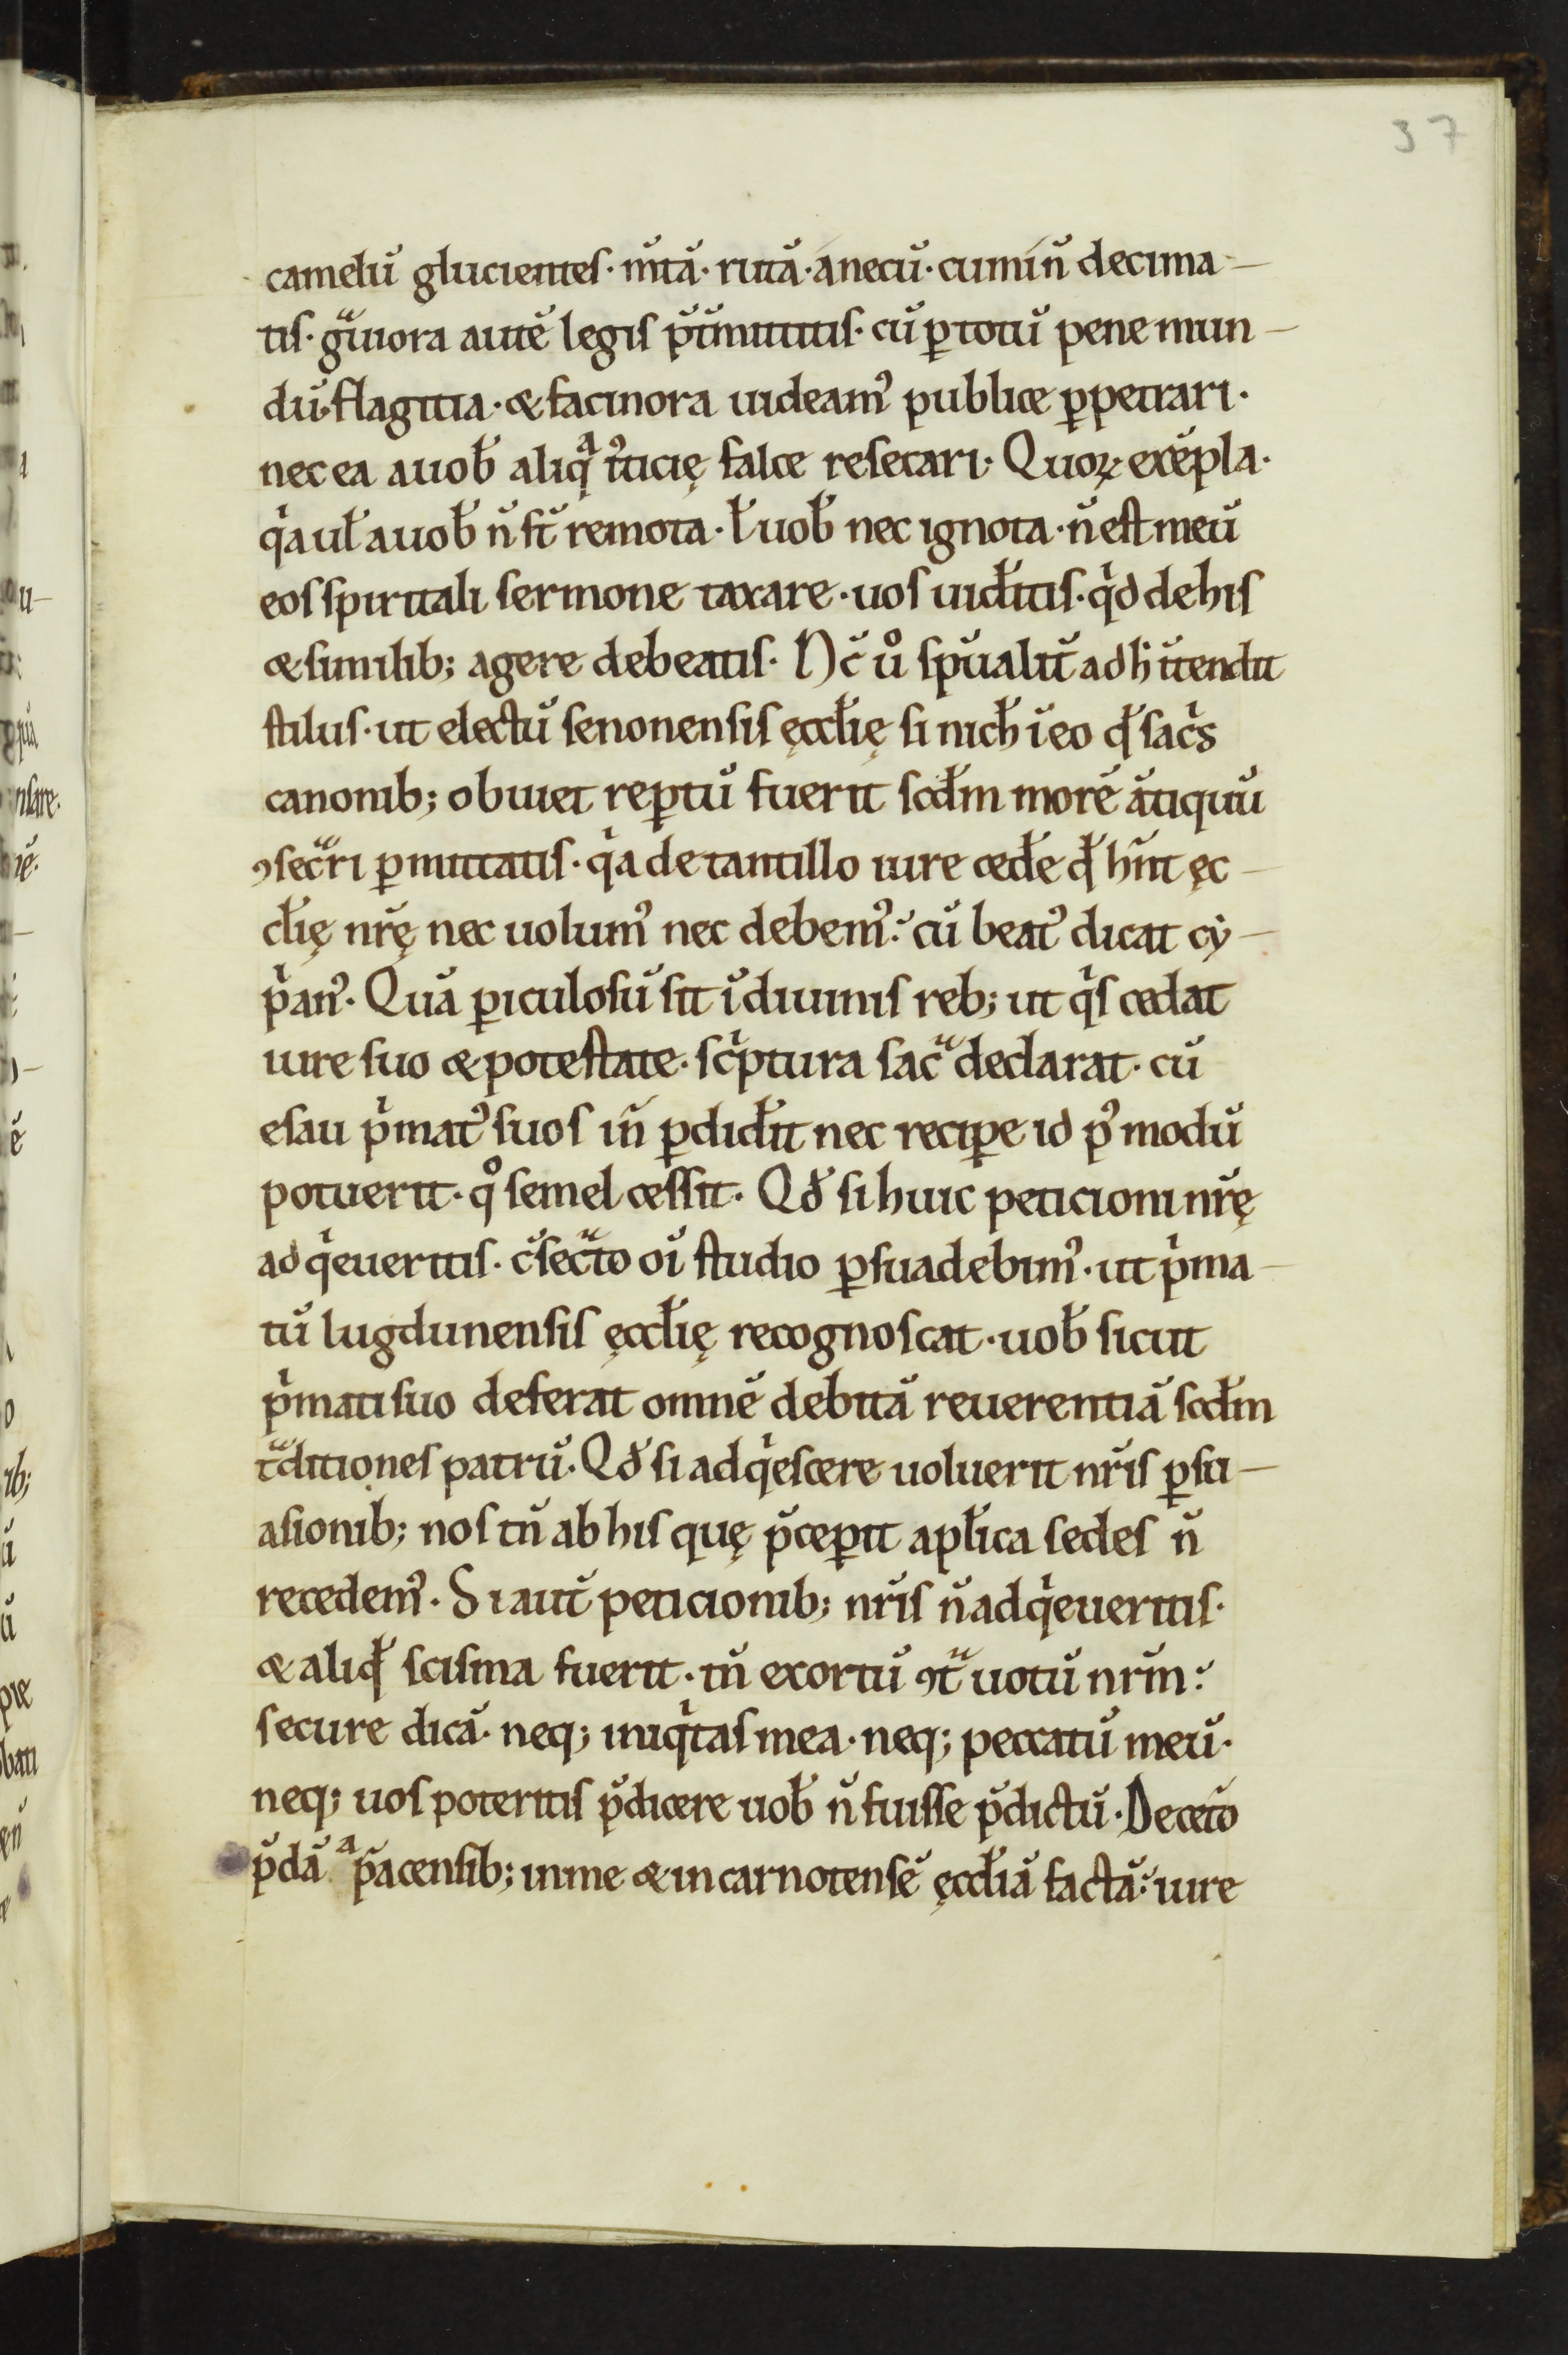 37
camelū glucientes· mtā· rutā· anecū· cumin̄ decima-
tis· gͣuiora autē legis p̄tͥmittitis· cū ꝑ totū pene mun-
dū flagitia· & facinora uideamꝰ publice ꝑpetrari·
nec ea auob̄ aliqͣ iꝰticię falce resecari· Quoꝝ exēpla·
qͥa ul̄ auob̄ n̄ st̄ remota· l̄ uob̄ nec ignota· n̄ est meū
eos spiritali sermone taxare· uos uid̄itis· qͥd de his
& similib; agere debeatis· Nc̄ uͦ sp̄ualit̄ adh̄ itendit
stilus· ut electū senonensis ęccl̄ię si nich̄ ī eo qd̄ sacͥs
canonib; obuiet reꝑtū fuerit scd̄m morē ātiquū
ꝯsecͣri ꝑmittatis· qͥa de tantillo iure ced̄e qd̄ h̄nt ęc-
cl̄ię nr̄ę nec uolumꝰ nec debemꝰ· cū beatꝰ dicat cy-
pͥanꝰ· Quā ꝑiculosū sit ī diuinis reb; ut qͥs cedat
iure suo & potestate· scͥptura sacͣ declarat· cū
esau pͥmatꝰ suos in̄ ꝑdid̄it nec reciꝑe id pꝰ modū
potuerit· qͦ semel cessit· Qd̄ si huic peticioni nr̄ę
adqͥeueritis· c̄secͣto oī studio ꝑsuadebimꝰ· ut pͥma-
tū lugdunensis ęccl̄ię recognoscat· uob̄ sicut
pͥmati suo deferat omnē debitā reuerentiā scd̄m
tͣditiones patrū· Qd̄ si adqͥescere uoluerit nr̄is ꝑsu-
asionib; nos tn̄ ab his quę p̄ceꝑit apl̄ica sedes n̄
recedemꝰ· Si aut̄ peticionib; nr̄is n̄ adqͥeueritis·
& aliqd̄ scisma fuerit· tn̄ exortū ꝯtͣ uotū nrm̄·
secure dicā· neq; iniqͥtas mea· neq; peccatū meū·
neq; uos poteritis p̄dicere uob̄ n̄ fuisse p̄dictū· De cet̄o
p̄dā a p̄acensib; in me & in carnotensē ęccl̄iā factā· iure